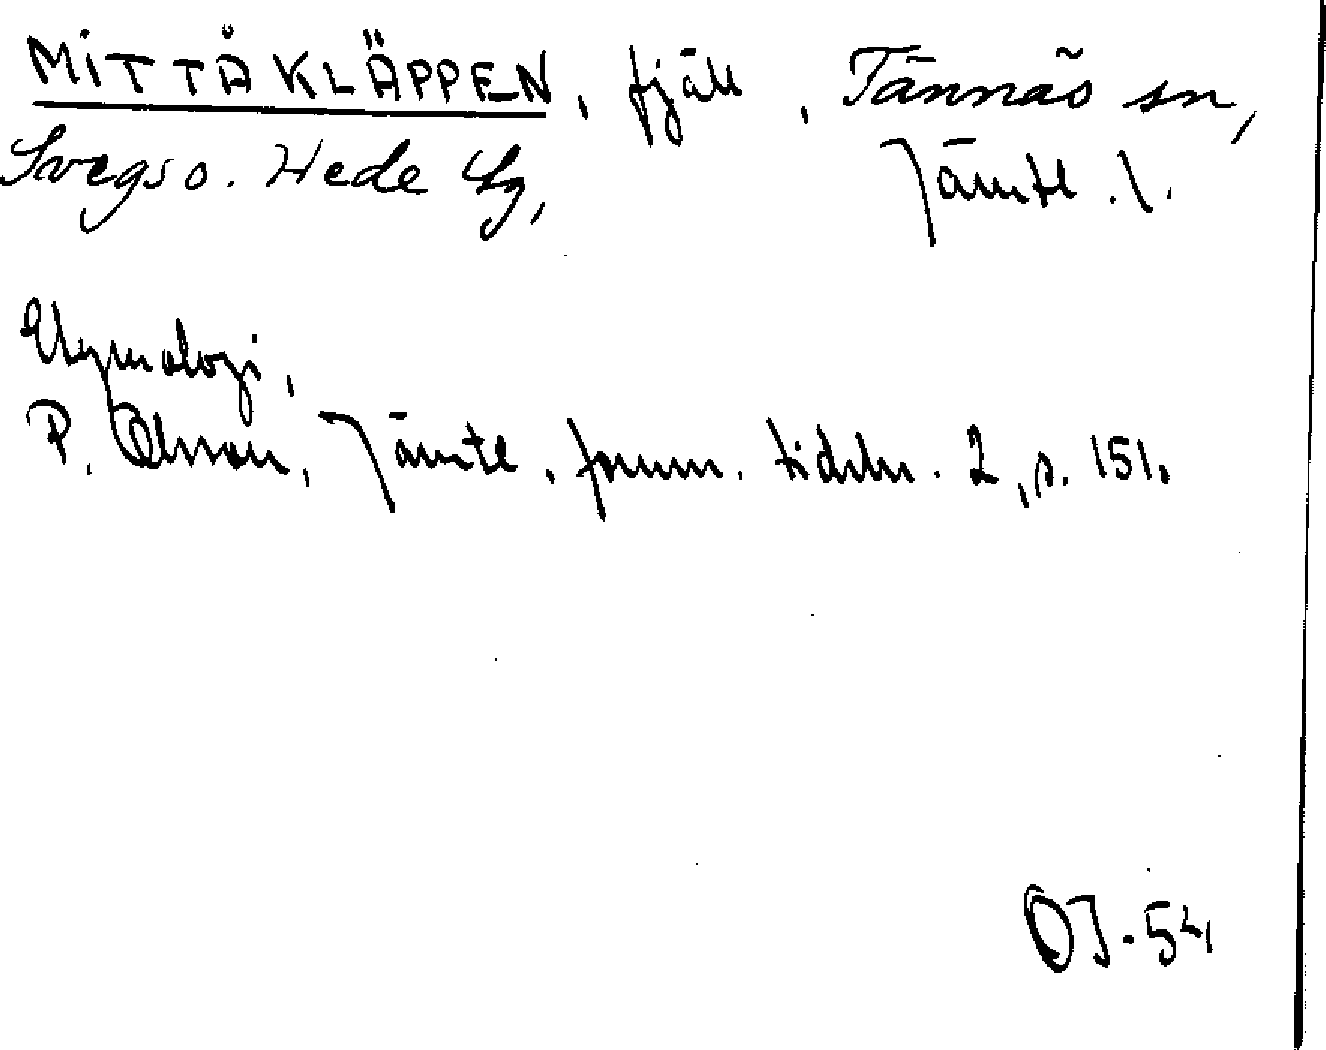 MITTÅKLÄPPEN, fjäll, Tännäs sn,
Svegs o. Hede tg, Jämtl. l.
Etymologi,
P. Olsson, Jämtl. fornm. tidskr. 2, s. 151.
OJ-54